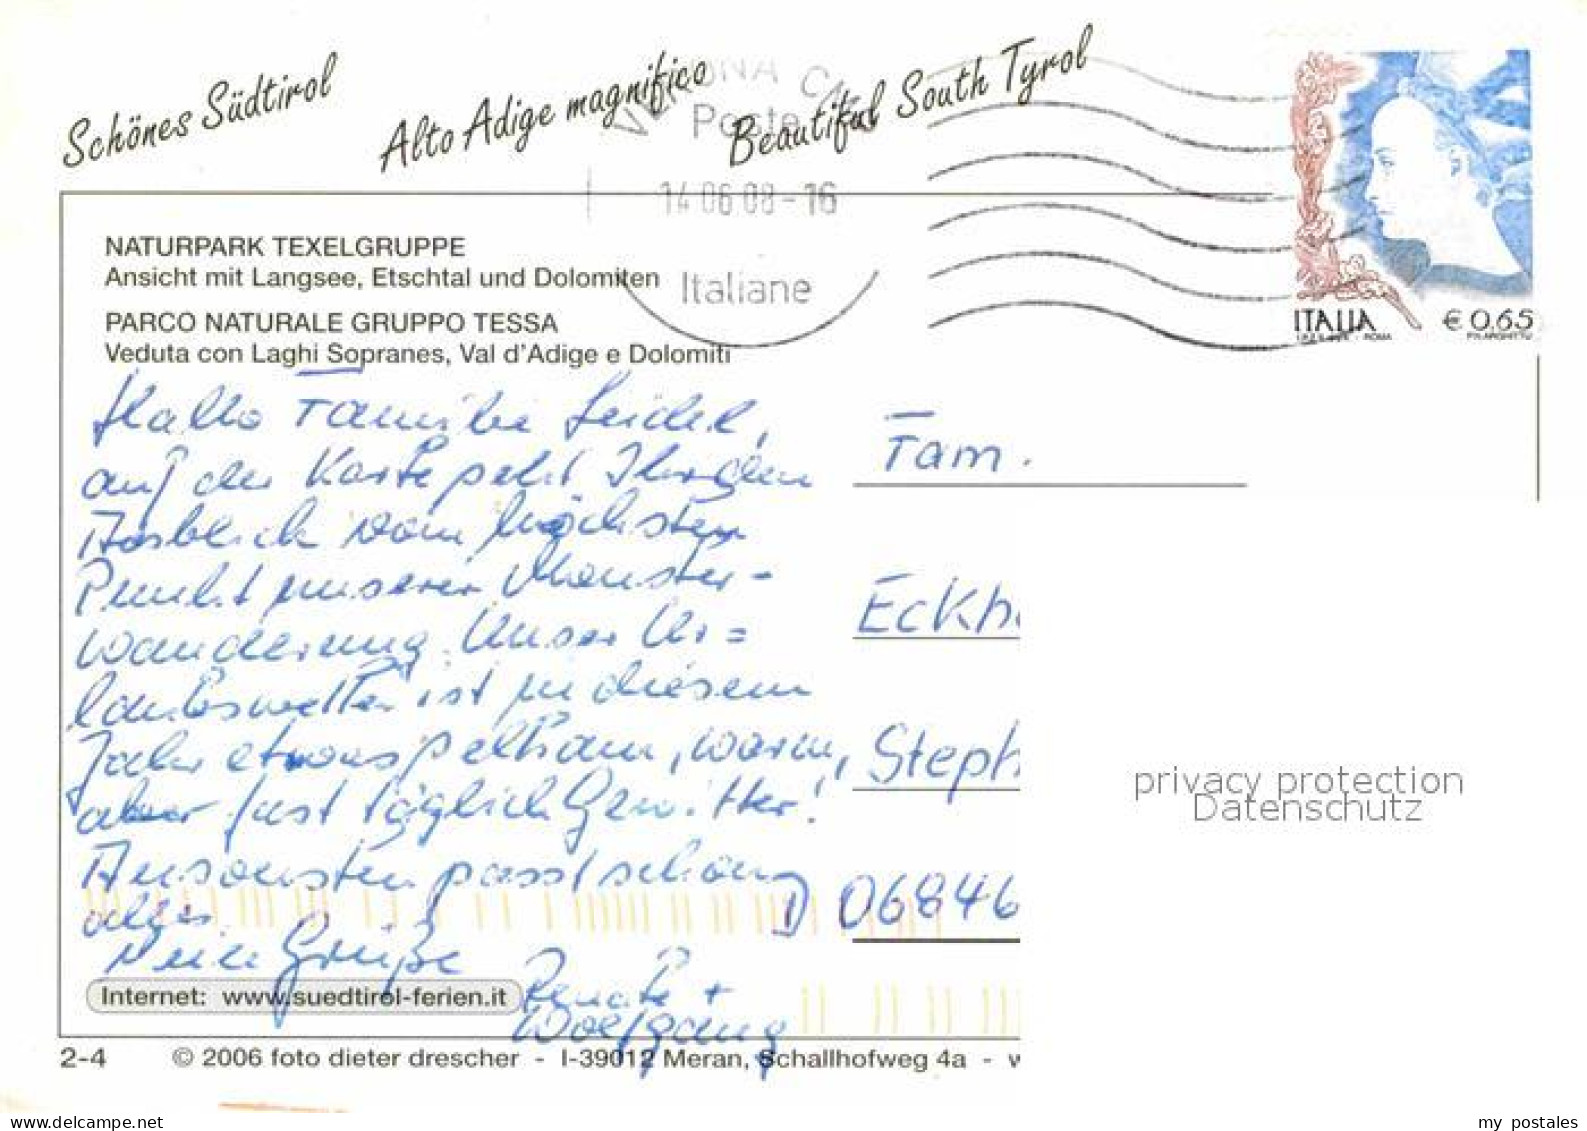 Schönes Südtirol
Alto Adige magnifico
Beautiful South Tyrol
Poste
14 06 08 - 16
Italiane
ITALIA € 0,65
I.P.Z.S. S.p.A. - ROMA
NATURPARK TEXELGRUPPE
Ansicht mit Langsee, Etschtal und Dolomiten
PARCO NATURALE GRUPPO TESSA
Veduta con Laghi Sopranes, Val d'Adige e Dolomiti
Hallo Familie Seidel,
auf der Karte seht Ihr den
Ausblick vom höchsten
Punkt unserer Monster-
wanderung. Unser Ur=
laubswetter ist in diesem
Jahr etwas seltsam, warm,
aber fast täglich Gewitter!
Ansonsten passt schon
alles.
Grüße
Renate +
Wolfgang
Fam.
Eckh
Steph
D 06846
privacy protection
Datenschutz
Internet: www.suedtirol-ferien.it
2-4 © 2006 foto dieter drescher - I-39012 Meran, Schallhofweg 4a - w
www.delcampe.net
my_postales